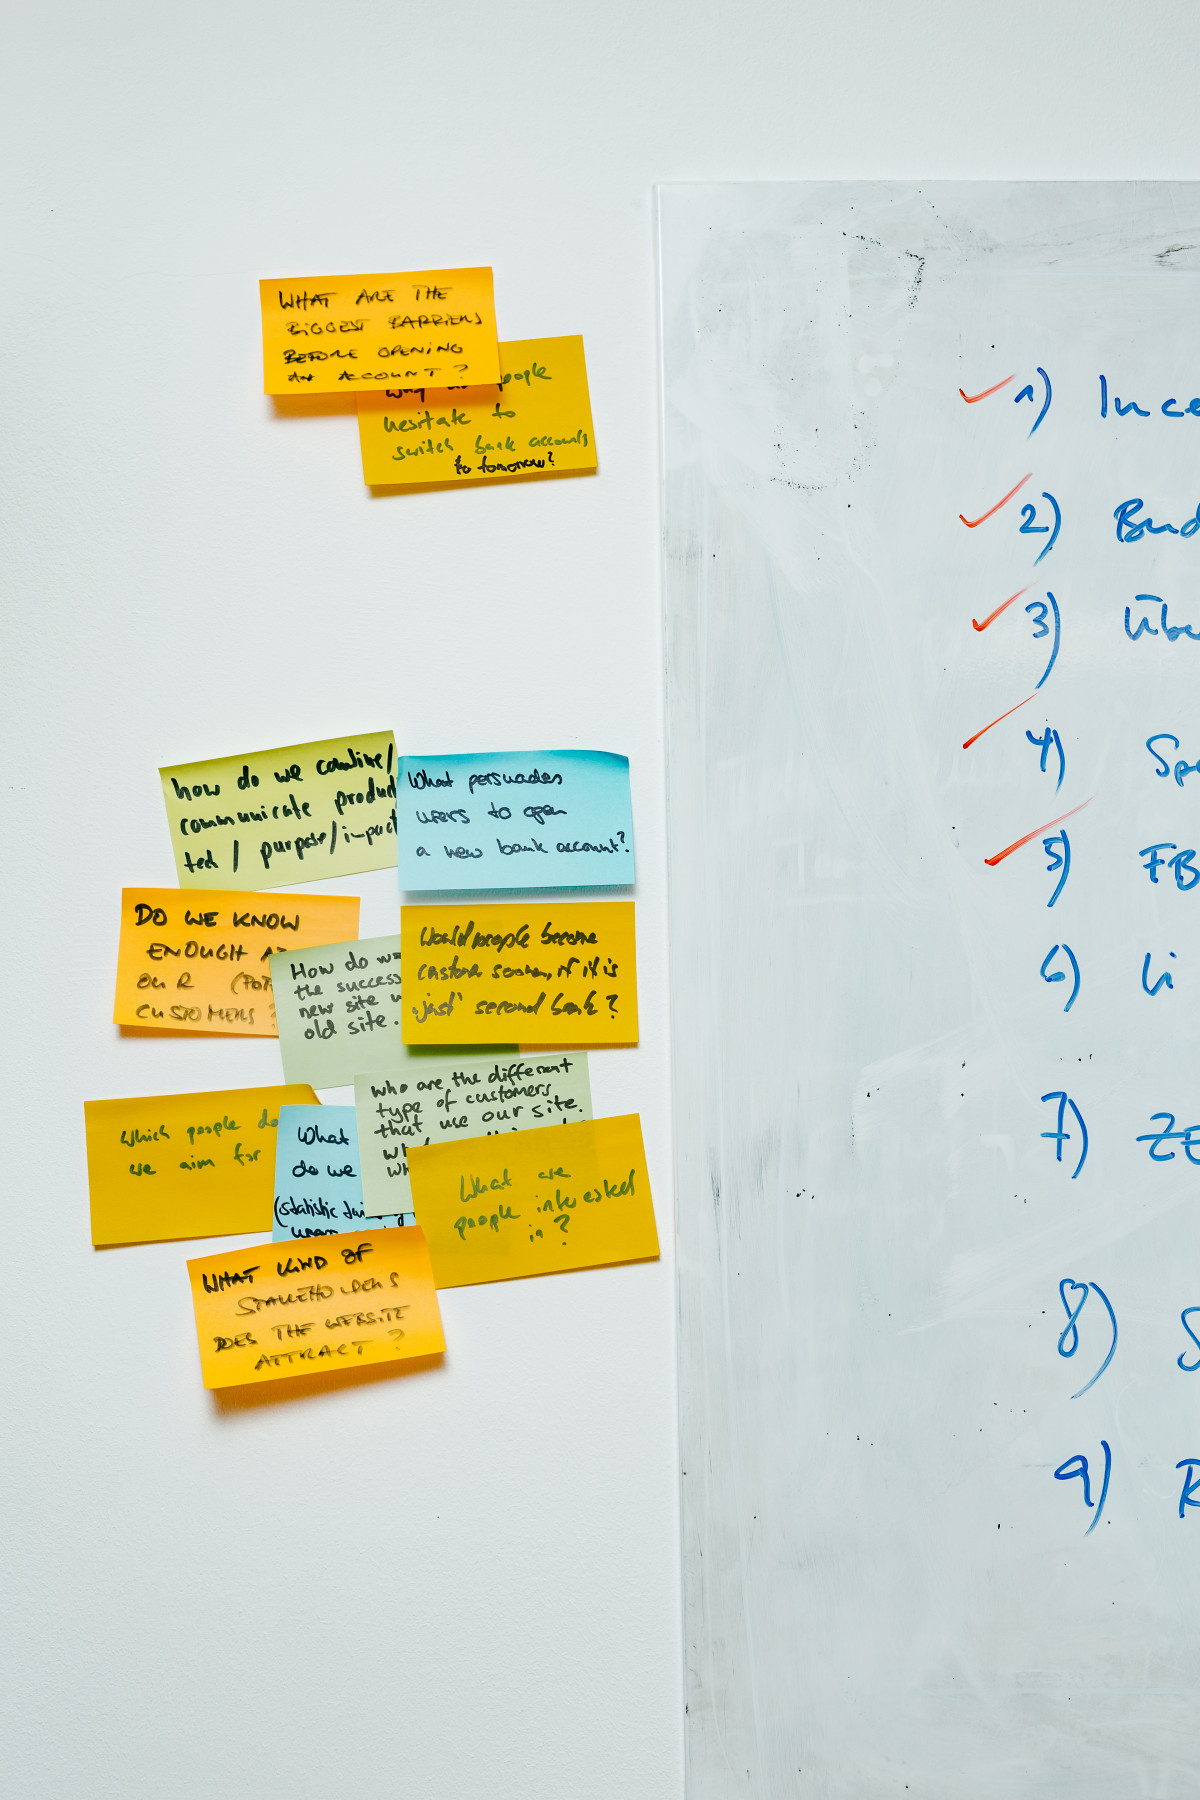 WHAT ARE THE
BIGGEST BARRIERS
BEFORE OPENING
AN ACCOUNT?
Why do people
hesitate to
switch bank accounts
to tomorrow?
how do we combine/
communicate product
tech / purpose/impact
What persuades
users to open
a new bank account?
DO WE KNOW
ENOUGH
OUR (POT
CUSTOMERS?
How do we
the success
new site
old site.
Would people become
customer sooner, if it is
'just' second bank?
Which people do
we aim for
What
do we
(statistic
who are the different
type of customers
that use our site.
What are
people interested
in?
WHAT KIND OF
STAKEHOLDERS
DOES THE WEBSITE
ATTRACT?
1) Ince
2) Bud
3) Übe
4) Spe
5) FB
6) Li
7) ZE
8) S
9) R